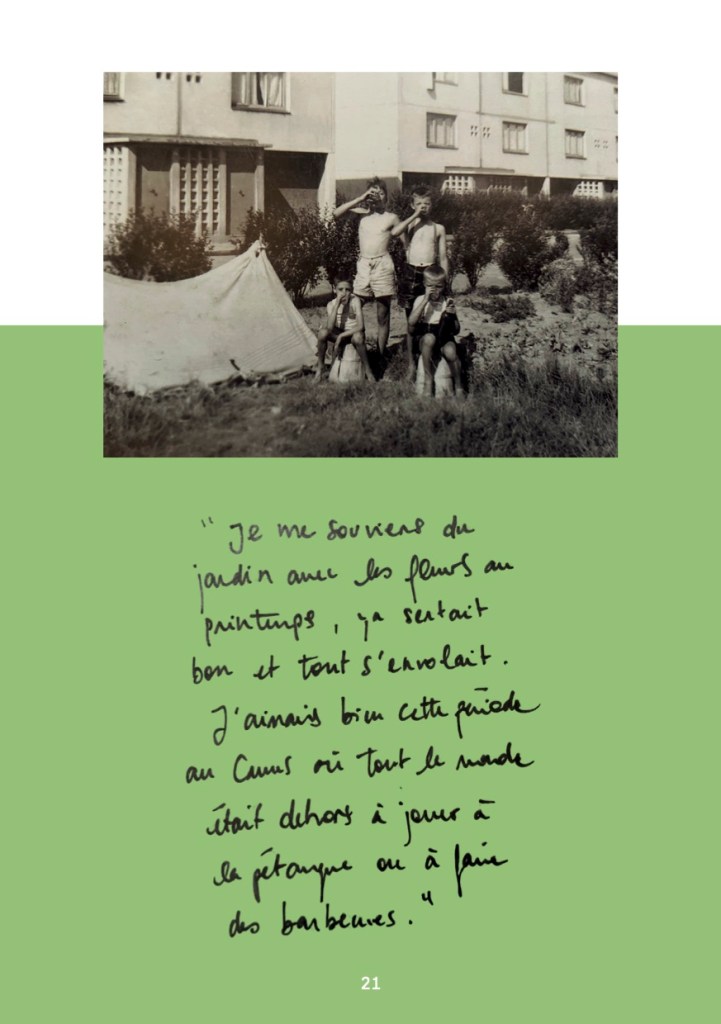 " Je me souviens du
jardin avec les fleurs au
printemps, ça sentait
bon et tout s'envolait.
J'aimais bien cette période
au Camus où tout le monde
était dehors à jouer à
la pétanque ou à faire
des barbecues. "
21